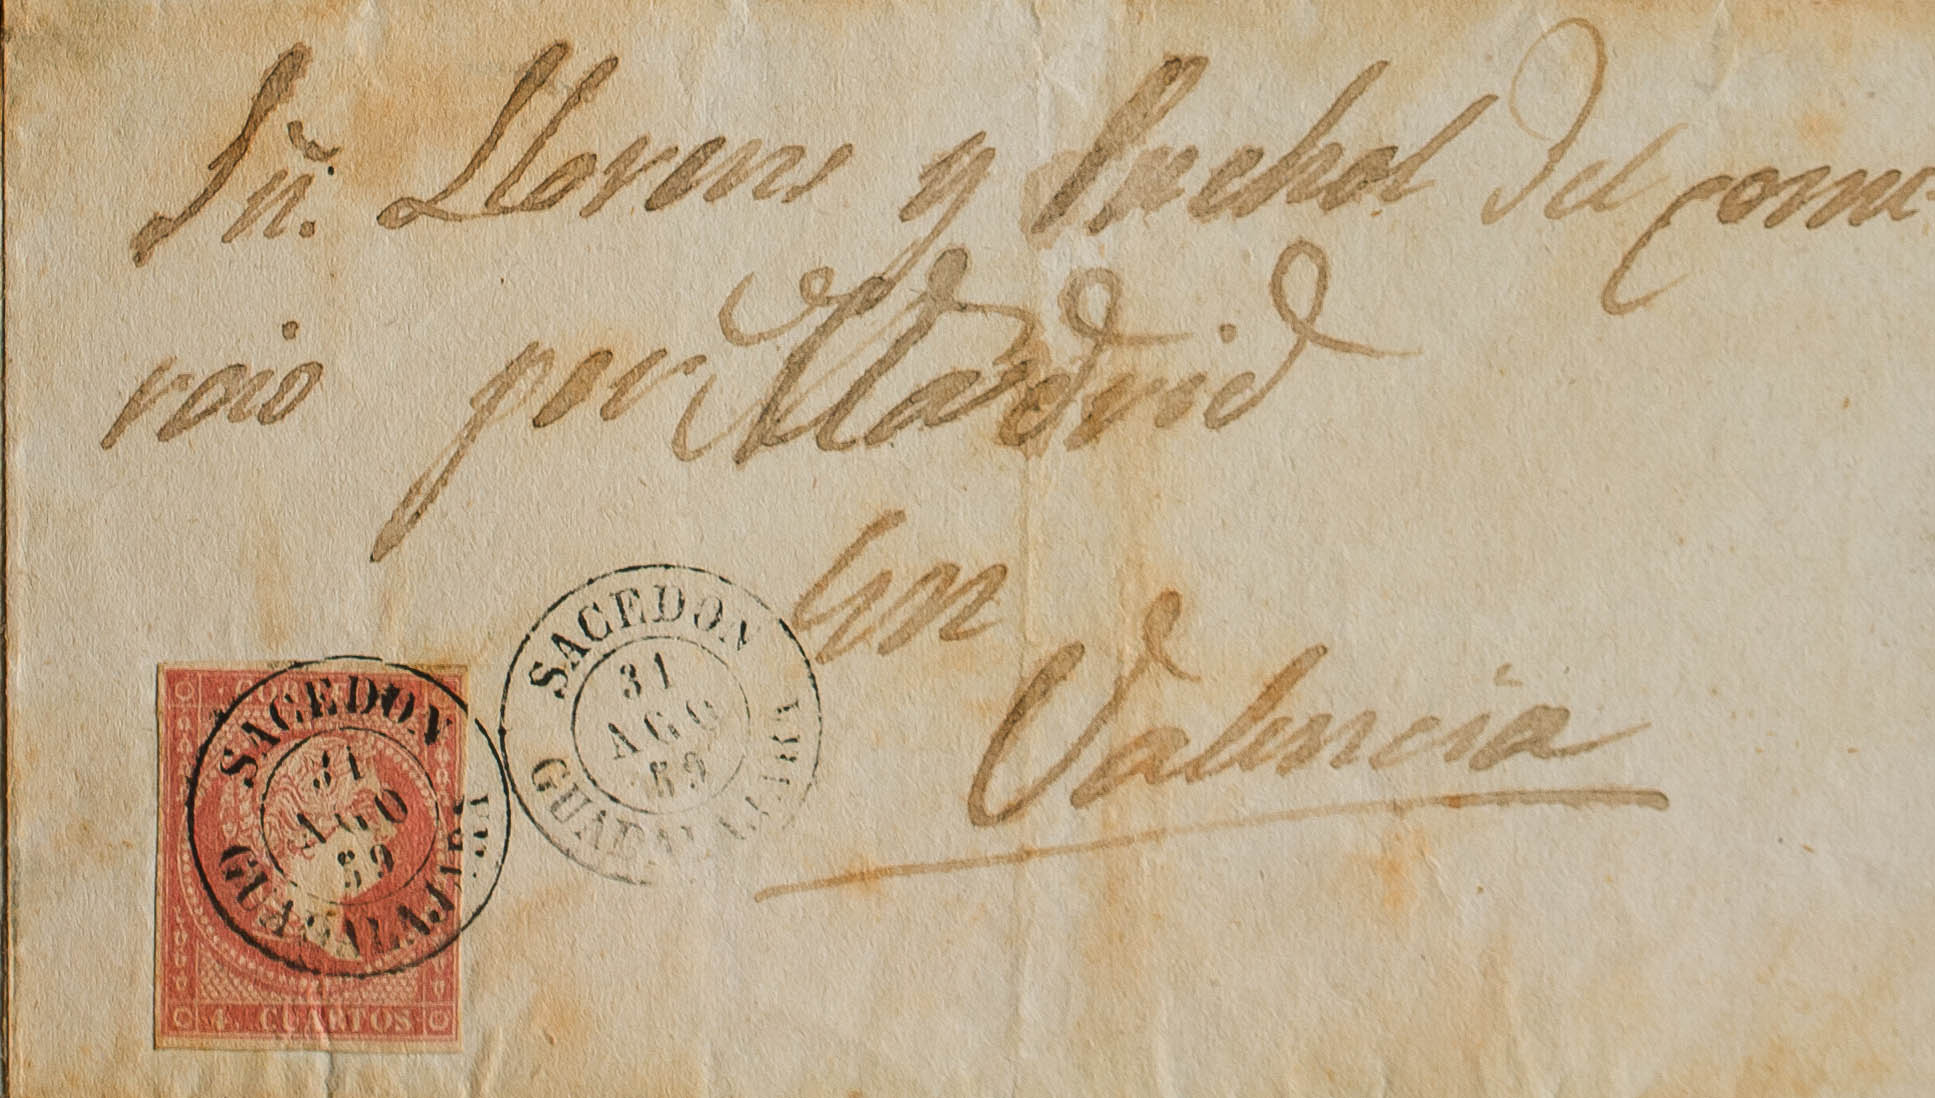 Sñ. Llorens y Puchol del comer-
cio por Madrid
En
Valencia
SACEDON
31
AGO
59
GUADALAJARA
SACEDON
31
AGO
59
GUADALAJARA
4 CUARTOS